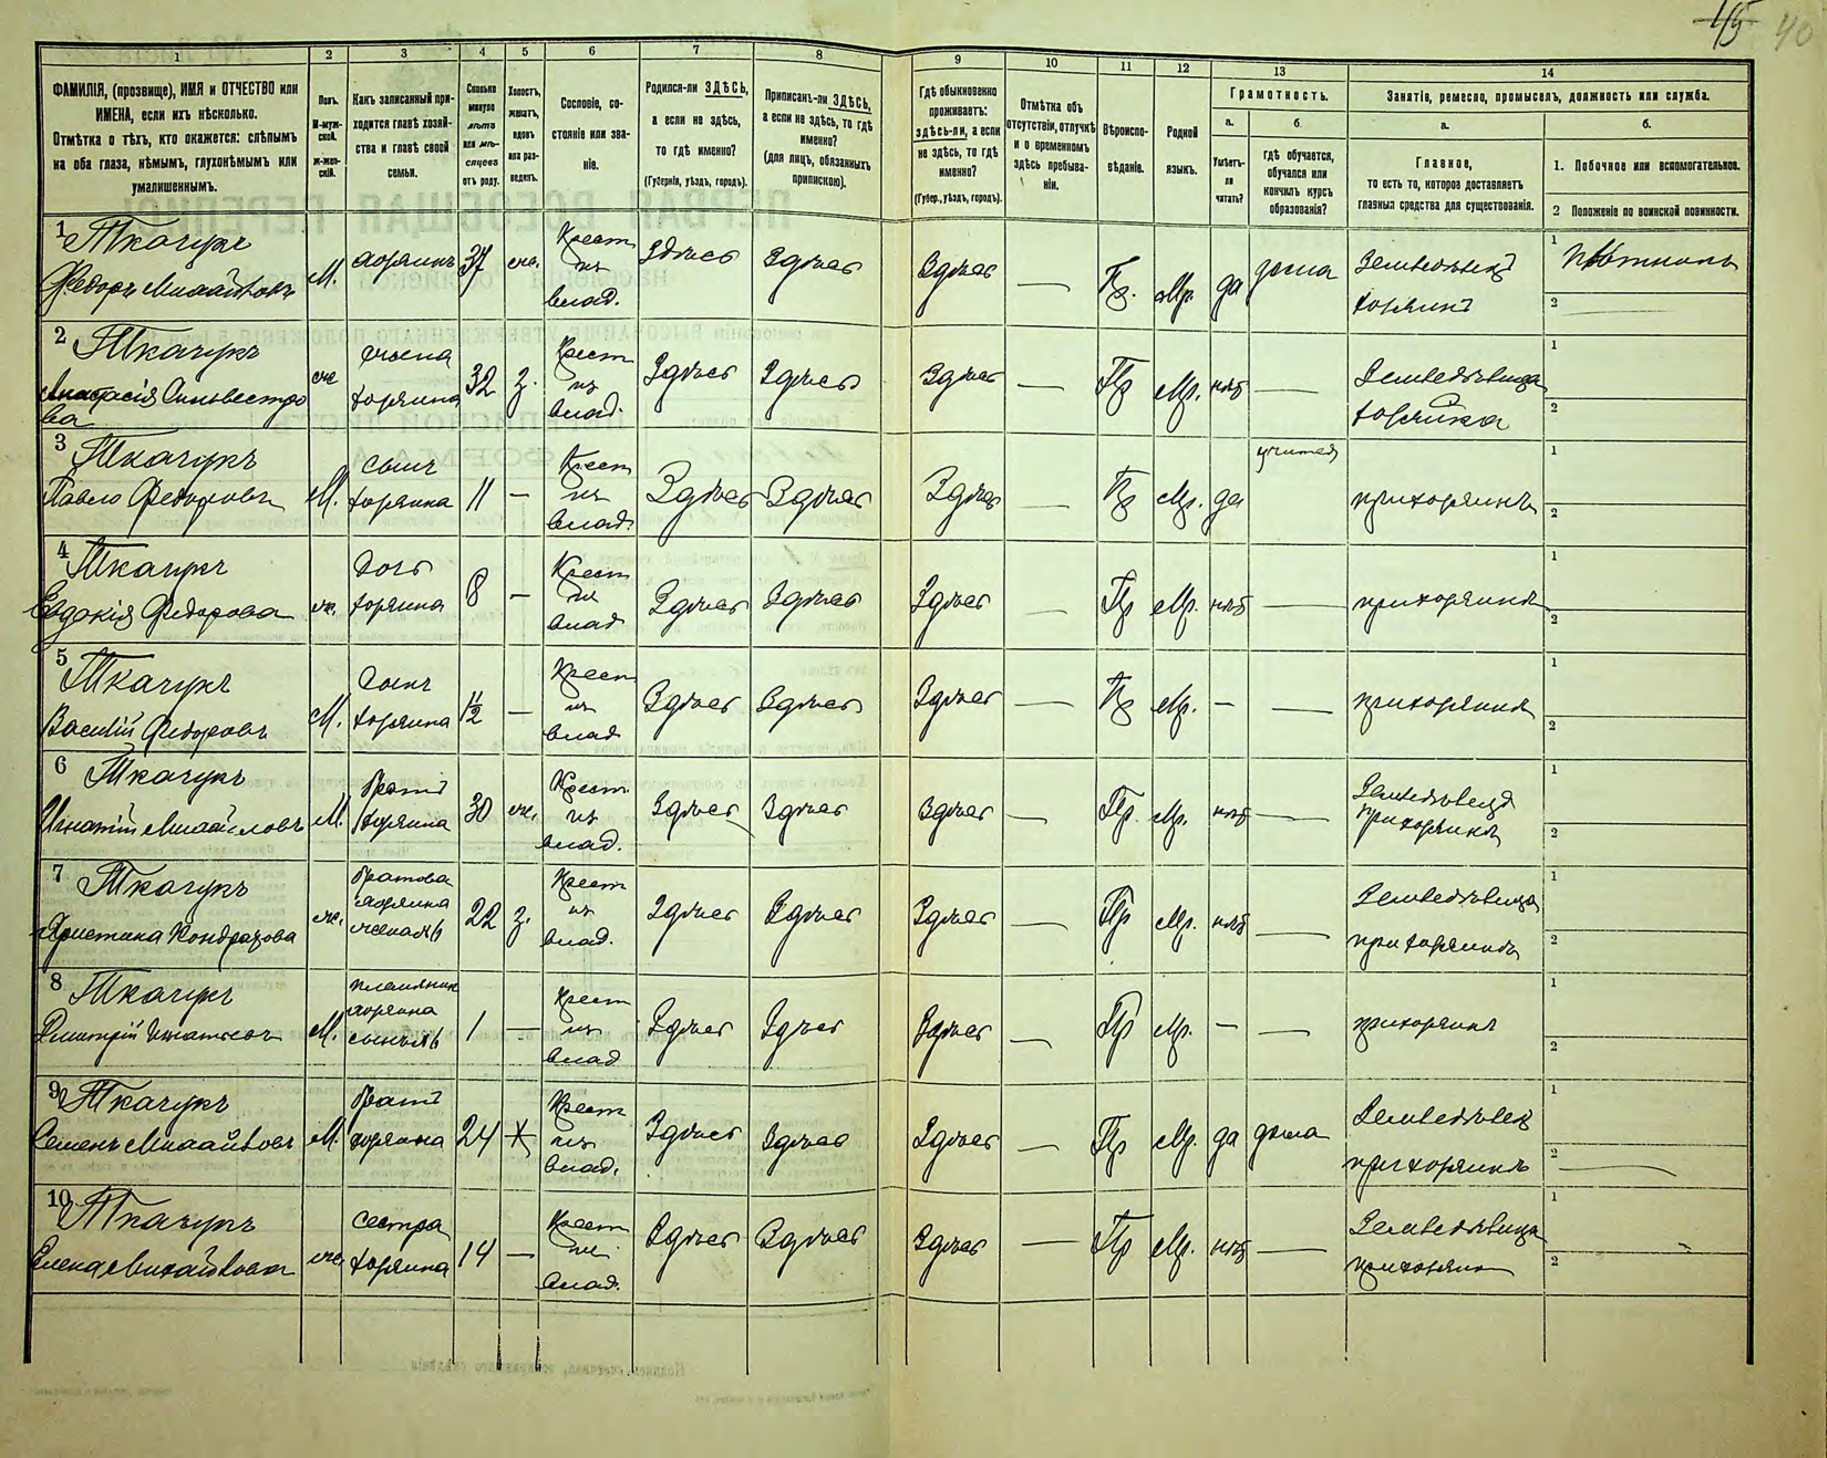 15 40
1 2 3 4 5 6 7 8 9 10 11 12 13 14
ФАМИЛІЯ, (прозвище), ИМЯ и ОТЧЕСТВО или
ИМЕНА, если ихъ нѣсколько.
Отмѣтка о тѣхъ, кто окажется: слѣпымъ
на оба глаза, нѣмымъ, глухонѣмымъ или
умалишеннымъ.
Полъ.
М-муж-
ской.
ж-жен-
скій.
Какъ записанный при-
ходится главѣ хозяй-
ства и главѣ своей
семьи.
Сколько
минуло
лѣтъ
или мѣ-
сяцевъ
отъ роду.
Холостъ,
женатъ,
вдовъ
или раз-
веденъ.
Сословіе, со-
стояніе или зва-
ніе.
Родился-ли ЗДѢСЬ,
а если не здѣсь,
то гдѣ именно?
(Губернія, уѣздъ, городъ).
Приписанъ-ли ЗДѢСЬ,
а если не здѣсь, то гдѣ
именно?
(для лицъ, обязанныхъ
припискою).
Гдѣ обыкновенно
проживаетъ:
здѣсь-ли, а если
не здѣсь, то гдѣ
именно?
(Губер., уѣздъ, городъ).
Отмѣтка объ
отсутствіи, отлучкѣ
и о временномъ
здѣсь пребыва-
ніи.
Вѣроиспо-
вѣданіе.
Родной
языкъ.
Грамотность.
а.
Умѣетъ-
ли
читать?
б.
гдѣ обучается,
обучался или
кончилъ курсъ
образованія?
Занятіе, ремесло, промыселъ, должность или служба.
а.
Главное,
то есть то, которое доставляетъ
главныя средства для существованія.
б.
1. Побочное или вспомогательное.
2 Положеніе по воинской повинности.
1 Ткачукъ
Федоръ Михайловъ М. хозяинъ 37 ж. Крест. изъ влад. Здѣсь Здѣсь Здѣсь — Пр. Мр. да дома Земледѣлецъ хозяинъ 1 Плотникъ 2 —
2 Ткачукъ
Анастасія Сильвестрова ж жена хозяина 32 з. Крест изъ влад. Здѣсь Здѣсь Здѣсь — Пр Мр. нѣтъ — Земледѣлица хозяйка 1 2
3 Ткачукъ
Павло Федоровъ М. сынъ хозяина 11 — Крест изъ влад. Здѣсь Здѣсь Здѣсь — Пр Мр. да учится при хозяинѣ 1 2
4 Ткачукъ
Евдокія Федорова ж. дочь хозяина 8 — Крест изъ влад Здѣсь Здѣсь Здѣсь — Пр Мр. нѣтъ — при хозяинѣ 1 2
5 Ткачукъ
Василій Федоровъ М. сынъ хозяина 1½ — Крест изъ влад Здѣсь Здѣсь Здѣсь — Пр Мр. — — при хозяинѣ 1 2
6 Ткачукъ
Игнатій Михайловъ М. братъ хозяина 30 ж. Крест изъ влад. Здѣсь Здѣсь Здѣсь — Пр. Мр. нѣтъ — Земледѣлецъ при хозяинѣ 1 2
7 Ткачукъ
Христина Кондратова ж. братова хозяина жена №6 22 з. Крест изъ влад. Здѣсь Здѣсь Здѣсь — Пр Мр. нѣтъ — Земледѣлица при хозяинѣ 1 2
8 Ткачукъ
Дмитрій Игнатьевъ М. племянник хозяина сынъ №6 1 — Крест изъ влад Здѣсь Здѣсь Здѣсь — Пр Мр. — — при хозяинѣ 1 2
9 Ткачукъ
Семенъ Михайловъ М. братъ хозяина 24 Х Крест изъ влад. Здѣсь Здѣсь Здѣсь — Пр Мр. да дома Земледѣлецъ при хозяинѣ 1 2 —
10 Ткачукъ
Елена Михайлова ж. сестра хозяина 14 — Крест изъ влад. Здѣсь Здѣсь Здѣсь — Пр Мр. нѣтъ — Земледѣлица при хозяинѣ 1 2